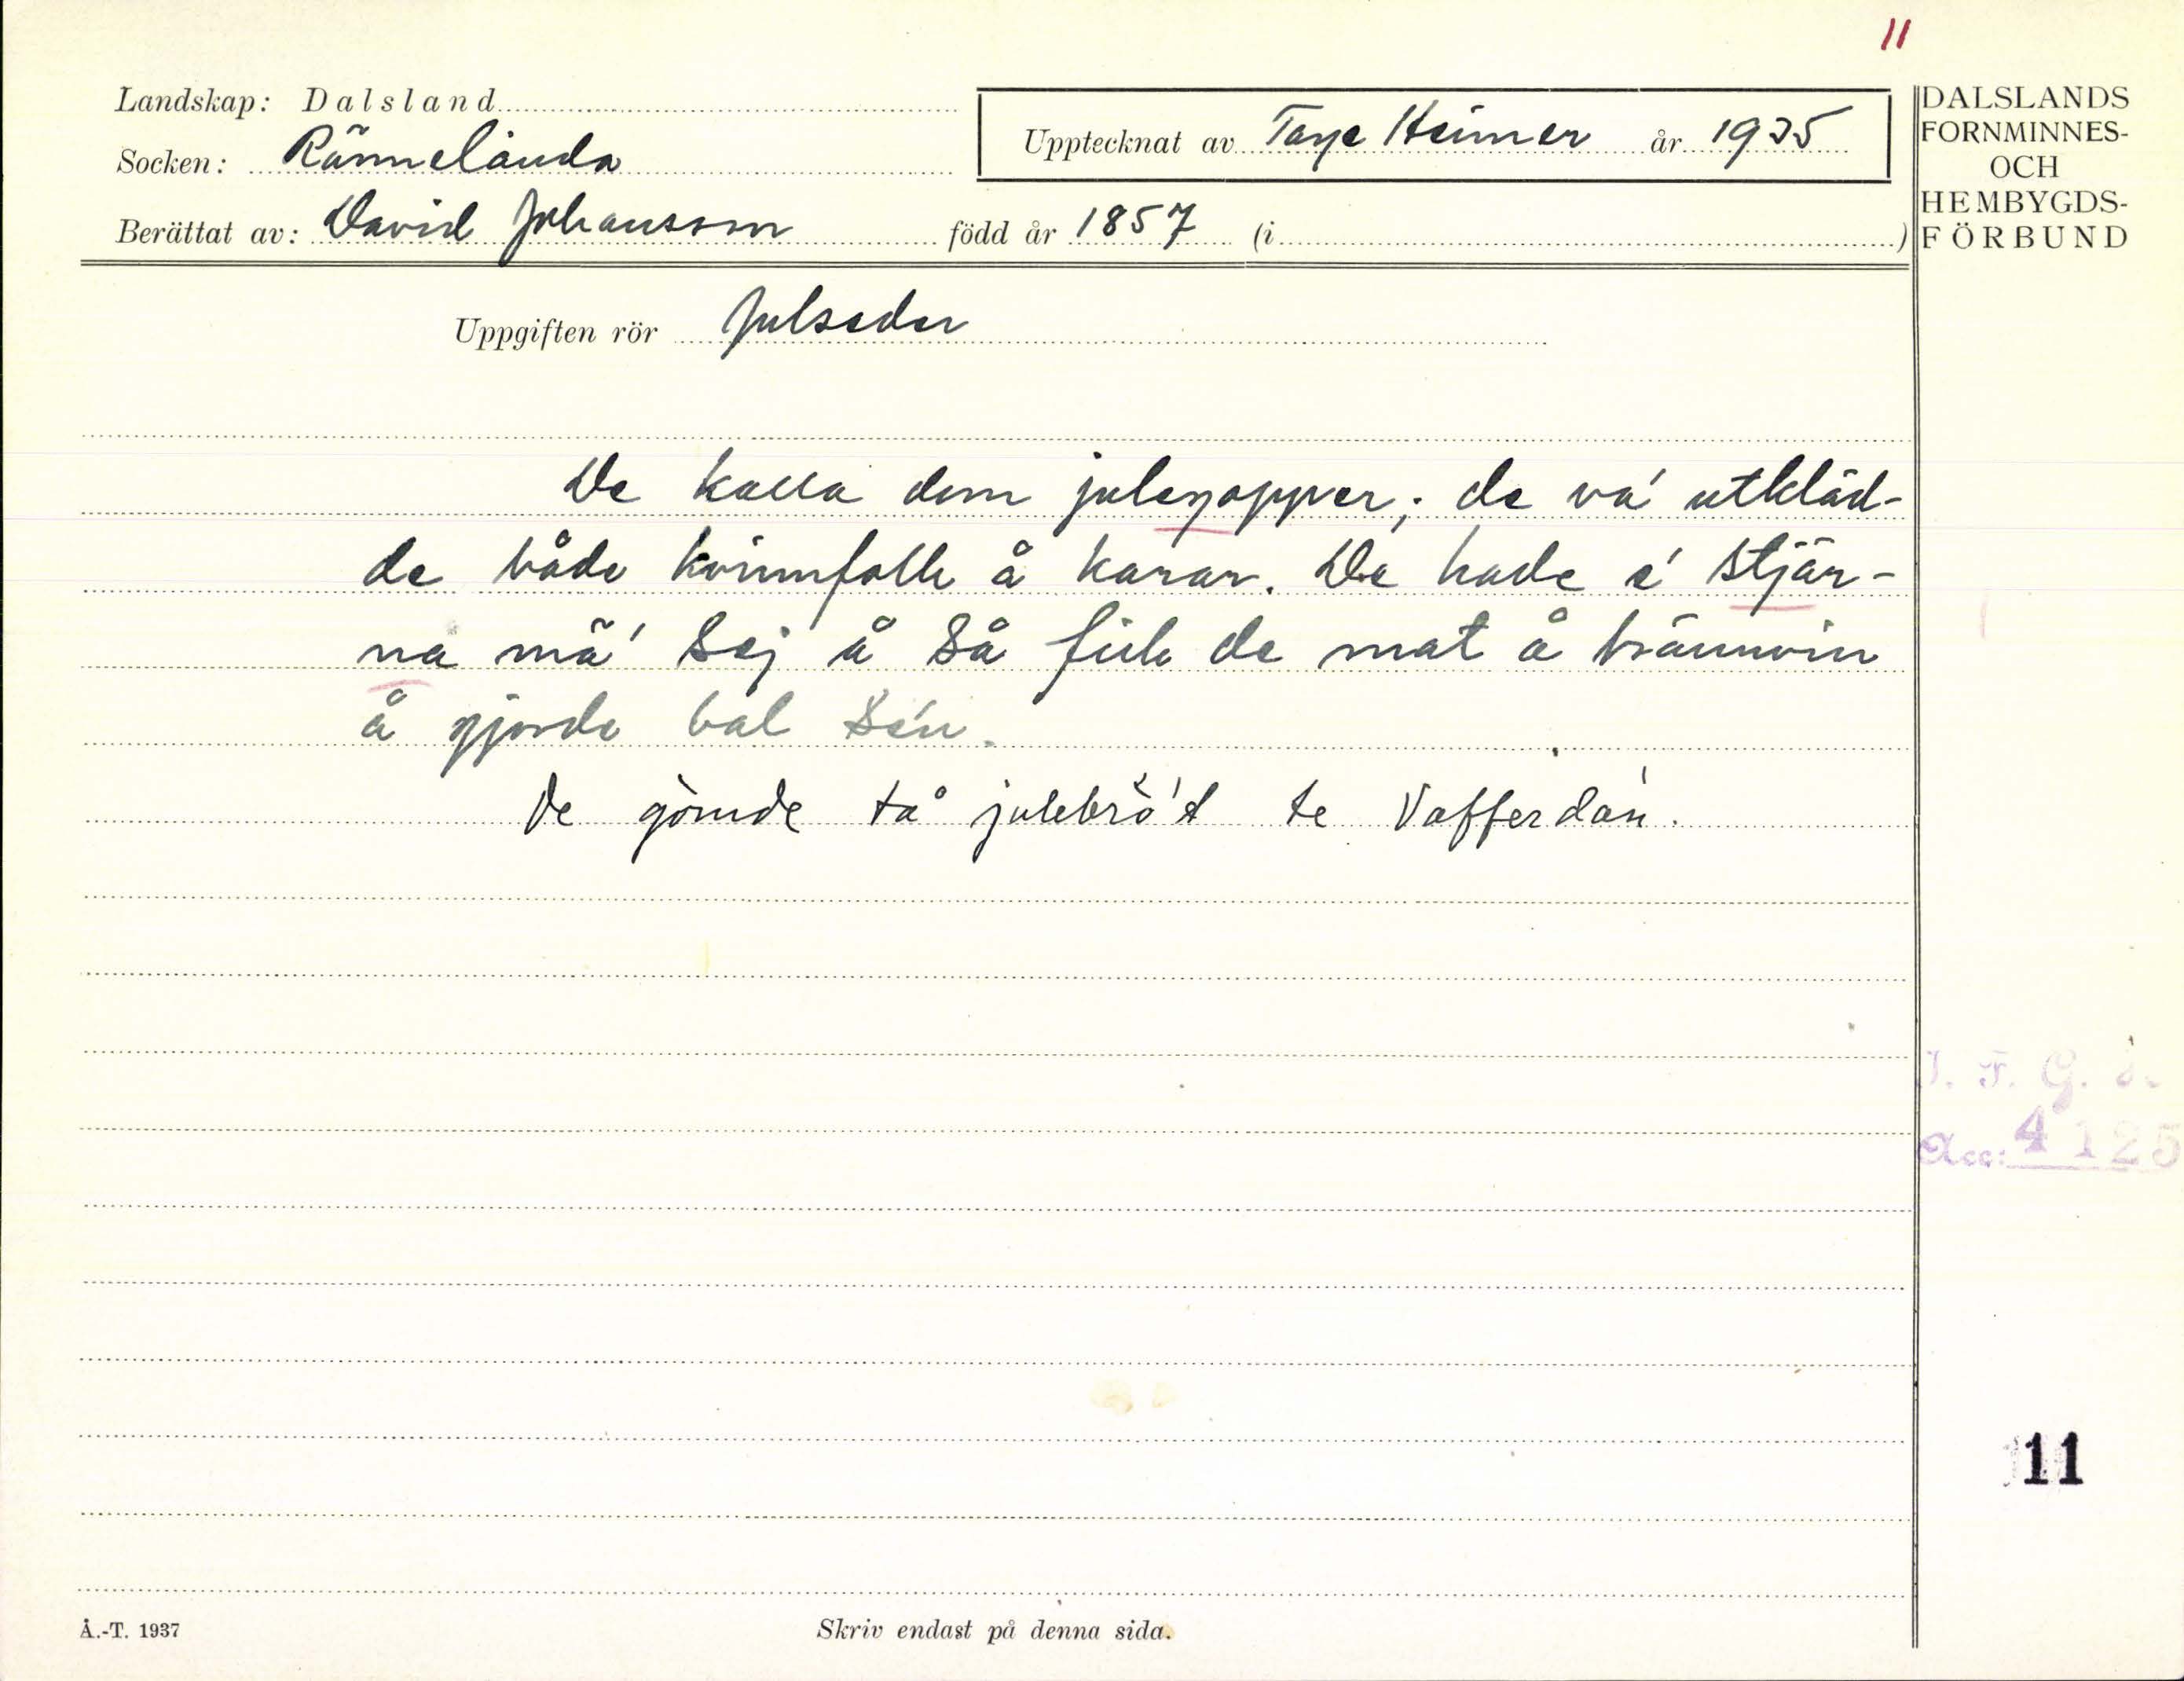 11
Landskap: Dalsland
Socken: Rännelanda
Upptecknat av Tage Heimer år 1935
Berättat av: David Johansson född år 1857 (i )
DALSLANDS
FORNMINNES-
OCH
HEMBYGDS-
FÖRBUND
Uppgiften rör Julseder
De kalla dem julegopper; de va' utkläd-
de både kvinnfolk å karar. De hade e' stjär-
na mä' sej å så fick de mat å brännvin
å gjorde bal sén.
De gömde tå julebrö't te Vafferdan.
Acc: 4125
11
Å.-T. 1937
Skriv endast på denna sida.